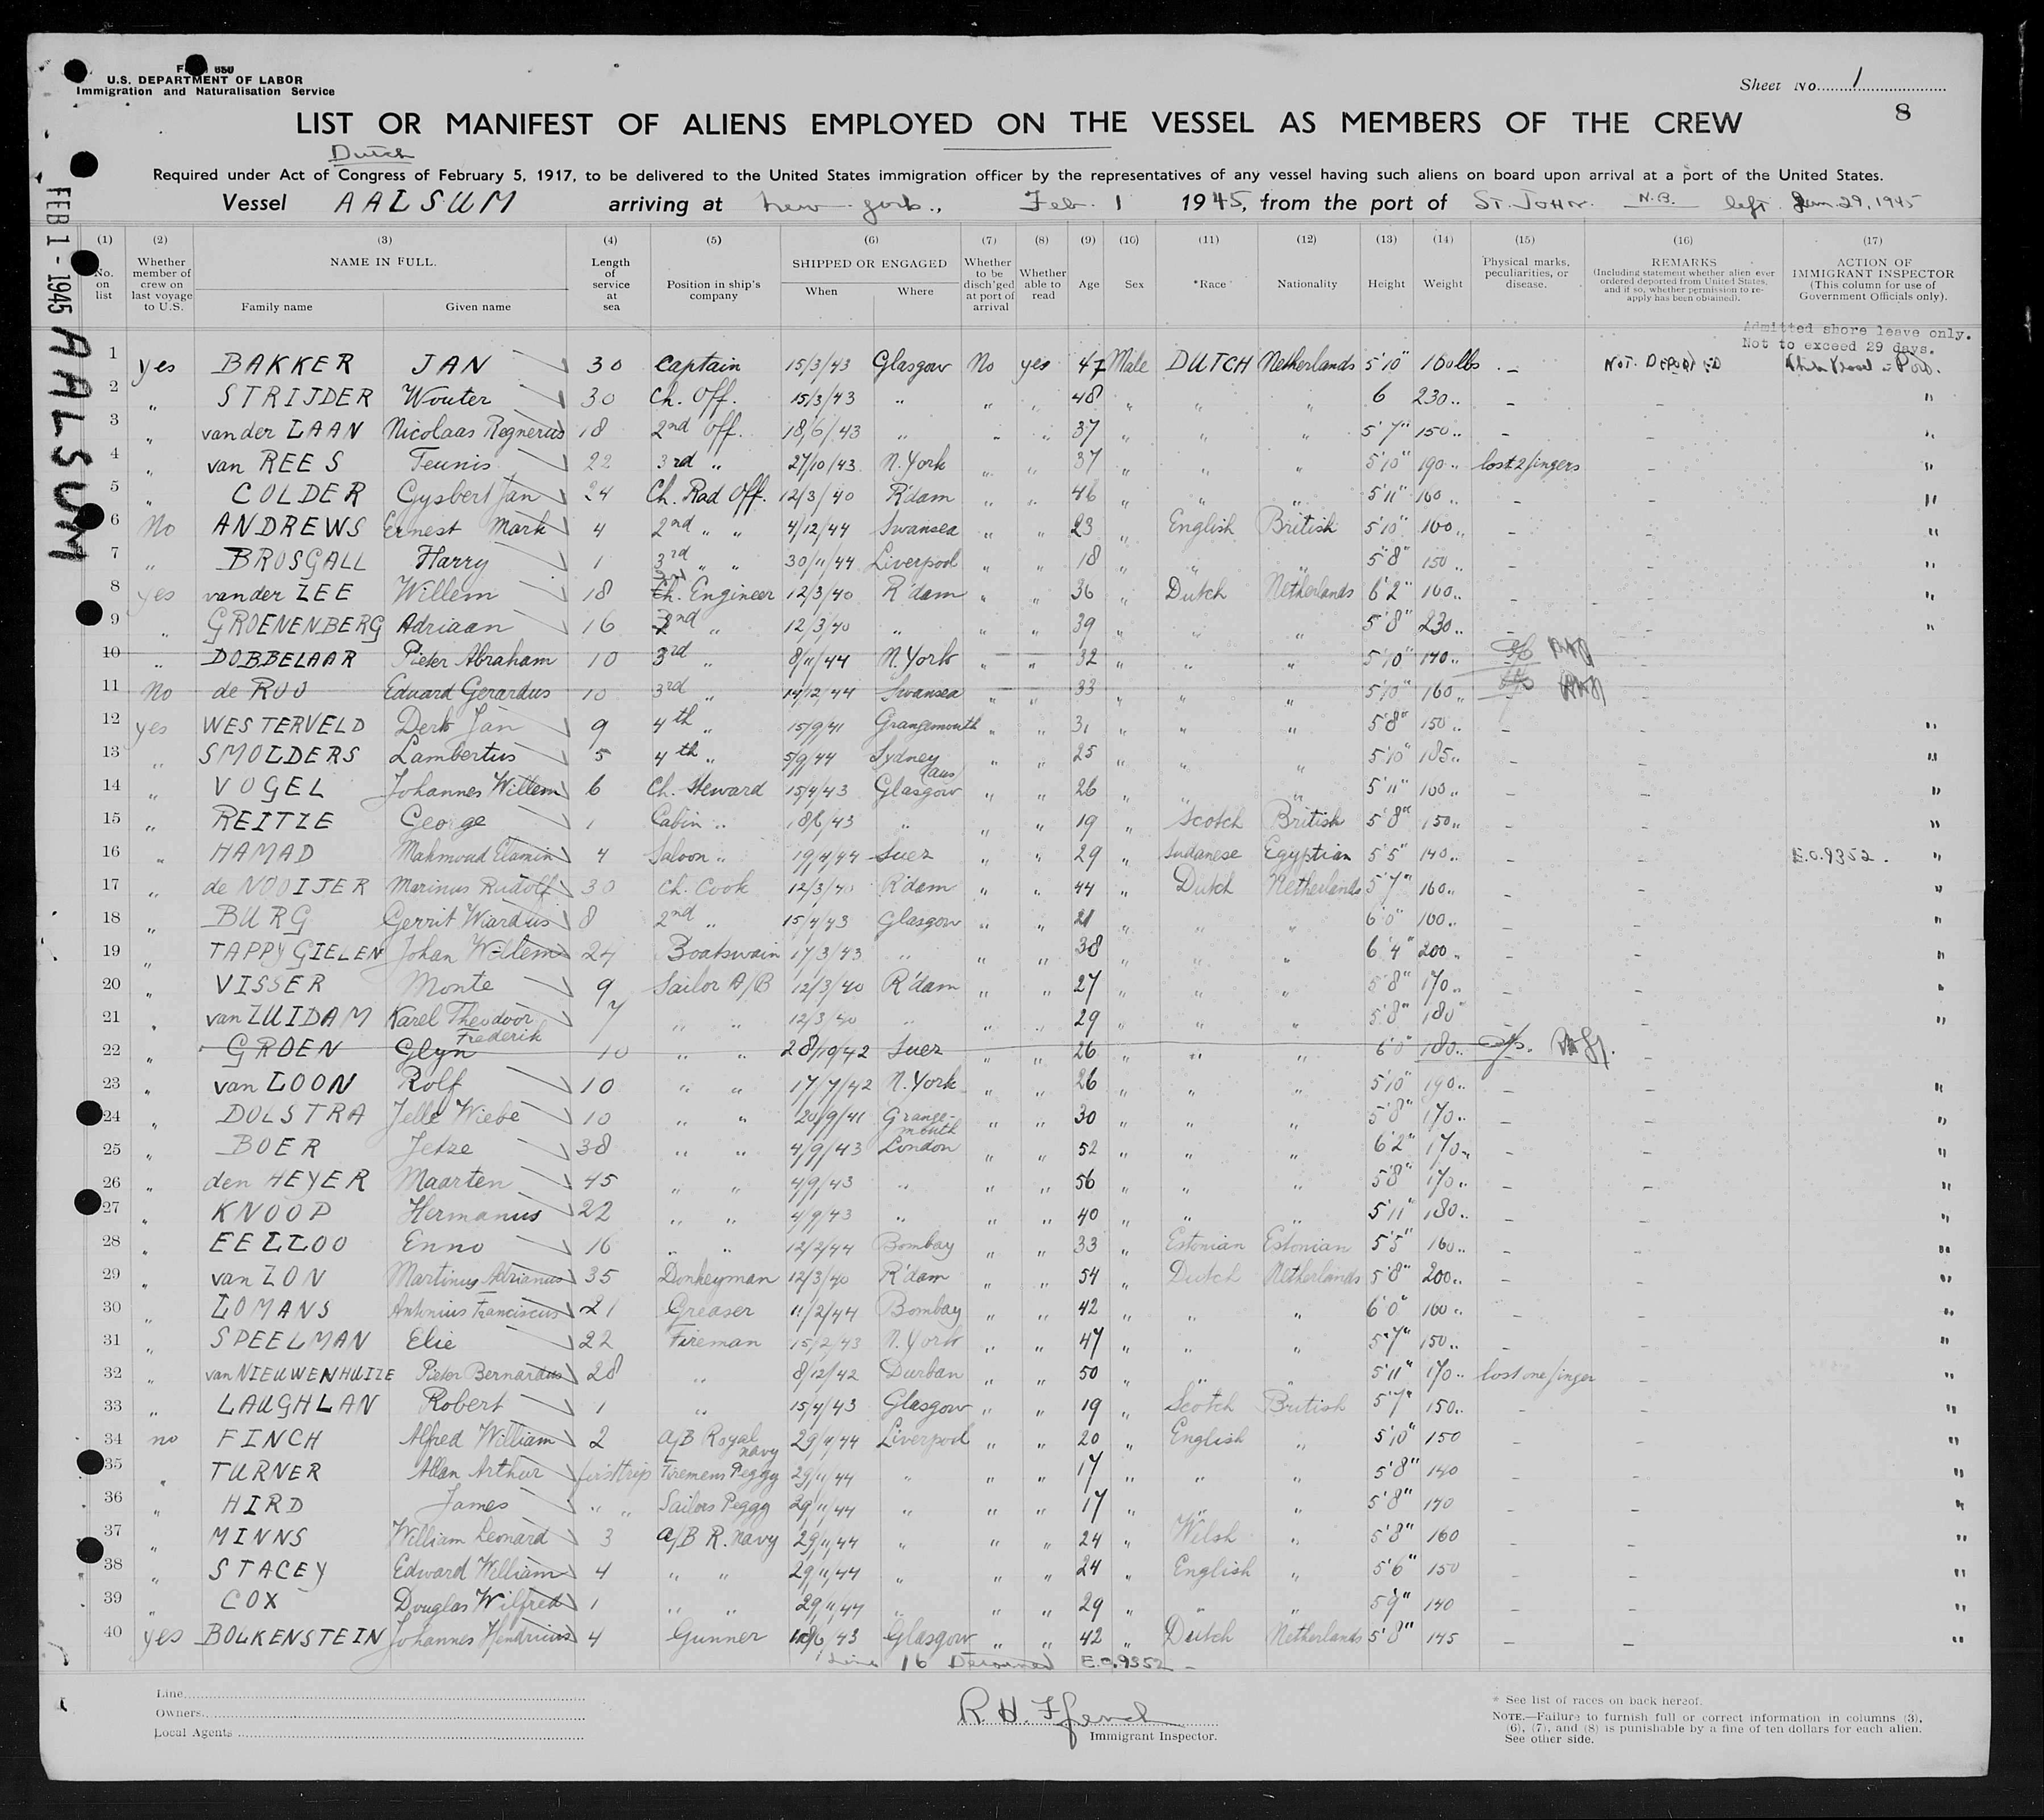 F 650
U.S. DEPARTMENT OF LABOR
Immigration and Naturalisation Service
Sheet No. 1
8
LIST OR MANIFEST OF ALIENS EMPLOYED ON THE VESSEL AS MEMBERS OF THE CREW
Dutch
Required under Act of Congress of February 5, 1917, to be delivered to the United States immigration officer by the representatives of any vessel having such aliens on board upon arrival at a port of the United States.
Vessel AALSUM arriving at New York., Feb. 1 1945, from the port of St. John. N.B. left Jan. 29, 1945
FEB 1 - 1945 AALSUM
(1) (2) (3) (4) (5) (6) (7) (8) (9) (10) (11) (12) (13) (14) (15) (16) (17)
No. on list
Whether member of crew on last voyage to U.S.
NAME IN FULL.
Family name Given name
Length of service at sea
Position in ship's company
SHIPPED OR ENGAGED
When Where
Whether to be disch'ged at port of arrival
Whether able to read
Age Sex *Race Nationality Height Weight
Physical marks, peculiarities, or disease.
REMARKS
(Including statement whether alien ever ordered deported from United States, and if so, whether permission to re-apply has been obtained).
ACTION OF IMMIGRANT INSPECTOR
(This column for use of Government Officials only).
Admitted shore leave only.
Not to exceed 29 days.
1 yes BAKKER JAN 30 Captain 15/3/43 Glasgow No yes 47 Male DUTCH Netherlands 5'10" 160lbs - NOT DEPORTED
2 " STRIJDER Wouter 30 Ch. Off. 15/3/43 " " " 48 " " " 6 230 " - - "
3 " van der LAAN Nicolaas Regnerus 18 2nd Off. 18/6/43 " " " 37 " " " 5'7" 150 " - - "
4 " van REES Teunis 22 3rd " 27/10/43 N.York " " 37 " " " 5'10" 190 " lost 2 fingers - "
5 " COLDER Gysbert Jan 24 Ch. Rad Off. 12/3/40 R'dam " " 46 " " " 5'11" 160 " - - "
6 No ANDREWS Ernest Mark 4 2nd " " 4/12/44 Swansea " " 23 " English British 5'10" 160 " - - "
7 " BROSGALL Harry 1 3rd " " 30/11/44 Liverpool " " 18 " " " 5'8" 150 " - - "
8 yes van der ZEE Willem 18 Ch. Engineer 12/3/40 R'dam " " 36 " Dutch Netherlands 6'2" 160 " - - "
9 " GROENENBERG Adriaan 16 2nd " 12/3/40 " " " 39 " " " 5'8" 230 " - - "
10 " DOBBELAAR Pieter Abraham 10 3rd " 8/11/44 N.York " " 32 " " " 5'10" 140 "
11 No de ROO Eduard Gerardus 10 3rd " 14/12/44 Swansea " " 33 " " " 5'10" 160 " -
12 yes WESTERVELD Derk Jan 9 4th " 15/9/41 Grangemouth " " 31 " " " 5'8" 150 " - - "
13 " SMOLDERS Lambertus 5 4th " 5/9/44 Sydney (aus) " " 25 " " " 5'10" 185 " - - "
14 " VOGEL Johannes Willem 6 Ch. Steward 15/4/43 Glasgow " " 26 " " " 5'11" 160 " - - "
15 " REITZE George 1 Cabin " 18/6/43 " " " 19 " Scotch British 5'8" 150 " - - "
16 " HAMAD Mahmoud Elamin 4 Saloon " 19/4/44 Suez " " 29 " Sudanese Egyptian 5'5" 140 " - - E.O.9352. "
17 " de NOOIJER Marinus Rudolf 30 Ch. Cook 12/3/40 R'dam " " 44 " Dutch Netherlands 5'7" 160 " - - "
18 " BURG Gerrit Wiardus 8 2nd " 15/4/43 Glasgow " " 21 " " " 6'0" 160 " - - "
19 " TAPPY GIELEN Johan Willem 24 Boatswain 17/3/43 " " " 38 " " " 6'4" 200 " - - "
20 " VISSER Monte 9 Sailor A/B 12/3/40 R'dam " " 27 " " " 5'8" 170 " - - "
21 " van ZUIDAM Karel Theodoor Frederik 7 " " 12/3/40 " " " 29 " " " 5'8" 180 " - - "
22 " GROEN Glyn 10 " " 28/10/42 Suez " " 26 " " " 6'0" 180 " -
23 " van LOON Rolf 10 " " 17/7/42 N.York " " 26 " " " 5'10" 190 " - - "
24 " DOLSTRA Jelle Wiebe 10 " " 20/9/41 Grangemouth " " 30 " " " 5'8" 170 " - - "
25 " BOER Jetze 38 " " 4/9/43 London " " 52 " " " 6'2" 170 " - - "
26 " den HEYER Maarten 45 " " 4/9/43 " " " 56 " " " 5'8" 170 " - - "
27 " KNOOP Hermanus 22 " " 4/9/43 " " " 40 " " " 5'11" 180 " - - "
28 " EELLOO Enno 16 " " 12/2/44 Bombay " " 33 " Estonian Estonian 5'5" 160 " - - "
29 " van ZON Martinus Adrianus 35 Donkeyman 12/3/40 R'dam " " 54 " Dutch Netherlands 5'8" 200 " - - "
30 " LOMANS Antonius Franciscus 21 Greaser 11/2/44 Bombay " " 42 " " " 6'0" 160 " - - "
31 " SPEELMAN Elie 22 Fireman 15/2/43 N.York " " 47 " " " 5'7" 150 " - - "
32 " van NIEUWENHUIZE Pieter Bernardus 28 " 8/12/42 Durban " " 50 " " " 5'11" 170 " lost one finger - "
33 " LAUGHLAN Robert 1 " 15/4/43 Glasgow " " 19 " Scotch British 5'7" 150 " - - "
34 no FINCH Alfred William 2 A/B Royal navy 29/11/44 Liverpool " " 20 " English " 5'10" 150 - - "
35 " TURNER Allan Arthur first trip Firemens Peggy 29/11/44 " " " 17 " " " 5'8" 140 - - "
36 " HIRD James " " Sailors Peggy 29/11/44 " " " 17 " " " 5'8" 140 - - "
37 " MINNS William Leonard 3 A/B R. navy 29/11/44 " " " 24 " Welsh " 5'8" 160 - - "
38 " STACEY Edward William 4 " " 29/11/44 " " " 24 " English " 5'6" 150 - - "
39 " COX Douglas Wilfred 1 " " 29/11/44 " " " 29 " " " 5'9" 140 - - "
40 yes BOLKENSTEIN Johannes Hendricus 4 Gunner 18/6/43 Glasgow " " 42 " Dutch Netherlands 5'8" 145 - - "
Line 16 Detained E.O.9352 -
Line
Owners
Local Agents
R.H. Ffrench
Immigrant Inspector.
* See list of races on back hereof.
NOTE.—Failure to furnish full or correct information in columns (3), (6), (7), and (8) is punishable by a fine of ten dollars for each alien. See other side.